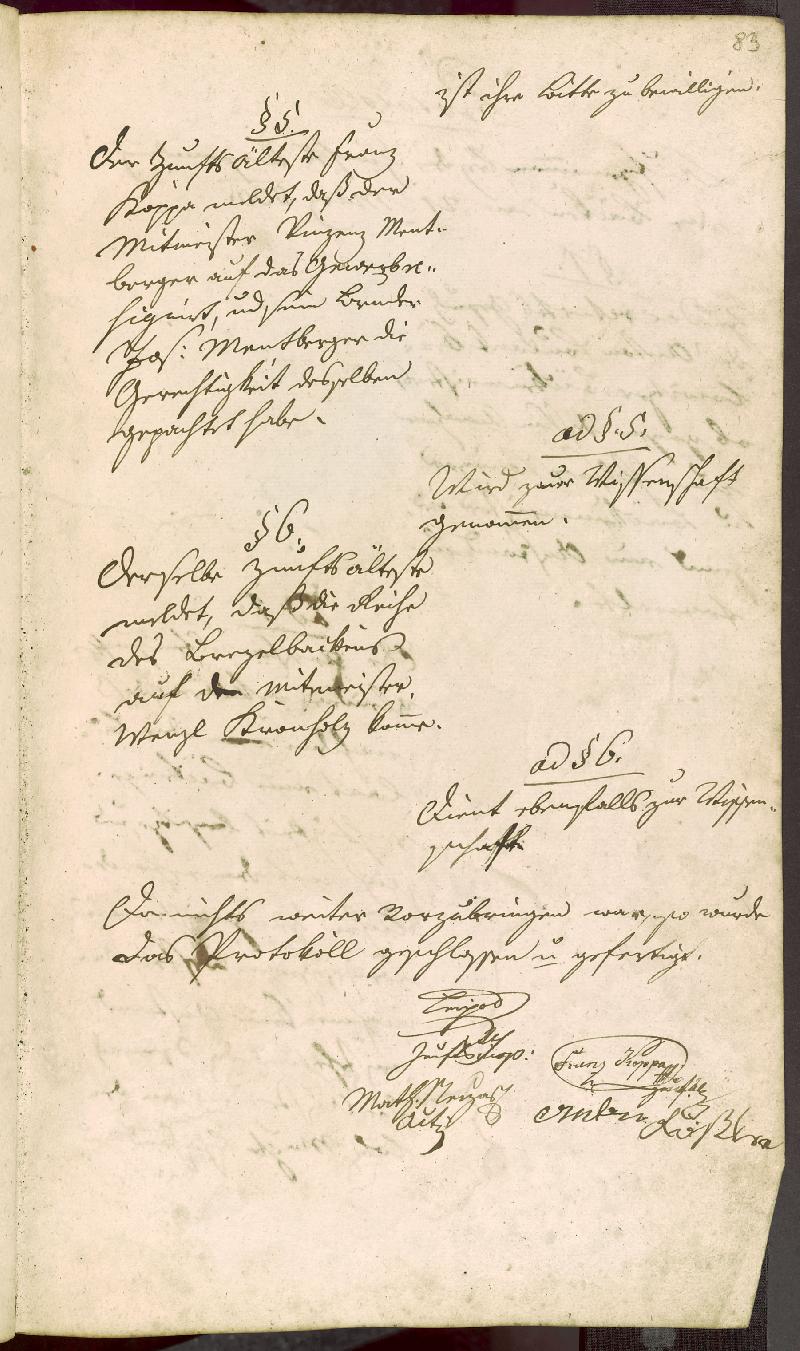 83
ist ihre Bitte zu bewilligen.
§ 5.
Der Zunftsälteste Franz
Koppa meldet, daß der
Mitmeister Vinzenz Ment-
berger auf das Gewerb re-
signirt, und sein Bruder
Jos: Mentberger die
Gerechtigkeit desselben
gepachtet habe.
ad §. 5.
Wird zur Wissenschaft
genommen.
§ 6.
Derselbe Zunftsälteste
meldet, daß die Reihe
des Brezelbackens
auf den Mitmeister
Wenzl Kronholz kome.
ad § 6.
Dient ebenfalls zur Wissen-
schaft.
Da nichts weiter vorzubringen war, so wurde
das Protokoll geschlossen u gefertigt.
Franz Koppa
Math:
Anton